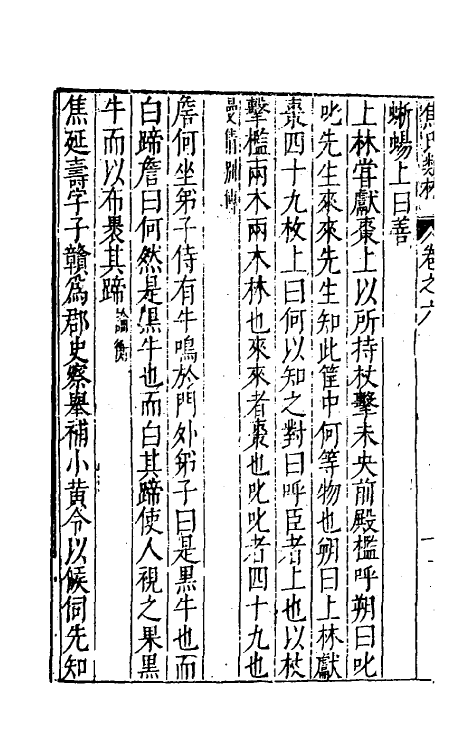 焦氏類林 卷之六
蜥蜴上曰善
上林嘗獻棗上以所持杖擊未央前殿檻呼朔曰叱
叱先生來來先生知此筐中何等物也朔曰上林獻
棗四十九枚上曰何以知之對曰呼臣者上也以杖
擊檻兩木兩木林也來來者棗也叱叱者四十九也
曼倩別傳
詹何坐弟子侍有牛鳴於門外弟子曰是黑牛也而
白蹄詹曰何然是黑牛也而白其蹄使人視之果黑
牛而以布褁其蹄論衡
焦延壽字子贛爲郡史察舉補小黄令以候伺先知